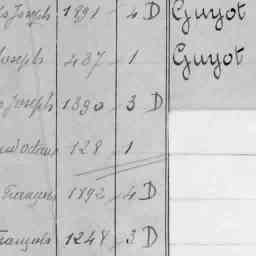 Joseph 1891 4 D Guyot
Joseph 437 1 Guyot
Joseph 1390 3 D
128 1
François 1892 4 D
François 1248 3 D